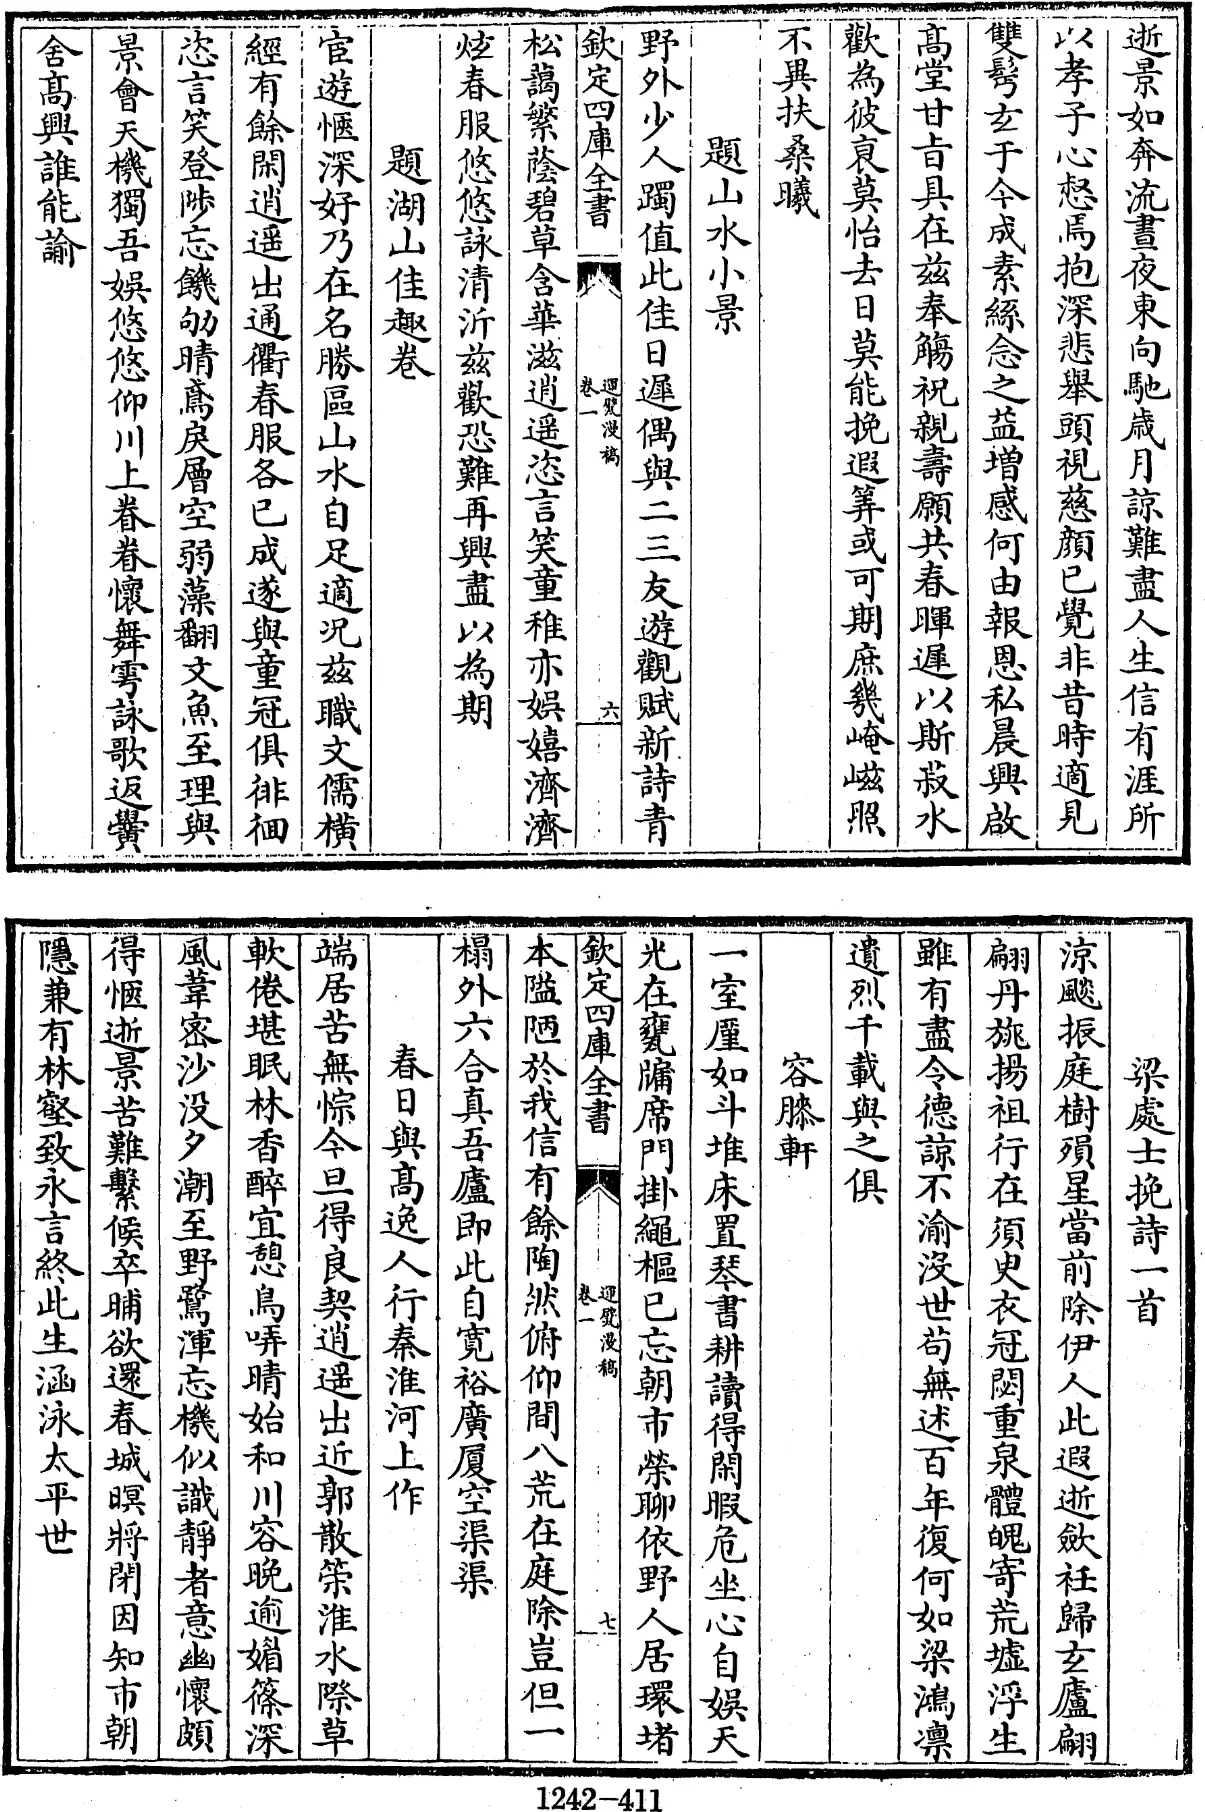 逝景如奔流晝夜東向馳歲月諒難盡人生信有涯所
以孝子心惄焉抱深悲舉頭視慈顏已覺非昔時適見
雙髩玄于今成素絲念之益增感何由報恩私晨興啟
高堂甘旨具在兹奉觴祝親壽願共春暉遲以斯菽水
歡為彼哀莫怡去日莫能挽遐筭或可期庶幾崦嵫照
不異扶桑曦
題山水小景
野外少人躅值此佳日遲偶與二三友遊觀賦新詩青
欽定四庫全書
運甓漫稿
卷一
六
松藹繁蔭碧草含華滋逍遥恣言笑童稚亦娛嬉濟濟
炫春服悠悠詠清沂兹歡恐難再興盡以為期
題湖山佳趣卷
宦遊愜深好乃在名勝區山水自足適况兹職文儒橫
經有餘閑逍遥出通衢春服各已成遂與童冠俱徘徊
恣言笑登陟忘饑劬晴鳶戾層空弱藻翻文魚至理與
景會天機獨吾娛悠悠仰川上眷眷懷舞雩詠歌返黌
舍高興誰能諭
梁處士挽詩一首
涼飇振庭樹殞星當前除伊人此遐逝斂衽歸玄廬翩
翩丹旐揚祖行在須臾衣冠閟重泉體魄寄荒墟浮生
雖有盡令德諒不渝沒世苟無述百年復何如梁鴻凛
遺烈千載與之俱
容膝軒
一室厪如斗堆床置琴書耕讀得閑暇危坐心自娛天
光在甕牖席門掛繩樞已忘朝市榮聊依野人居環堵
欽定四庫全書
運甓漫稿
卷一
七
本隘陋於我信有餘陶然俯仰間八荒在庭除豈但一
榻外六合真吾廬即此自寛裕廣厦空渠渠
春日與高逸人行秦淮河上作
端居苦無悰今旦得良契逍遥出近郭散策淮水際草
軟倦堪眠林香醉宜憩鳥哢晴始和川容晚逾媚篠深
風葦密沙没夕潮至野鷺渾忘機似識靜者意幽懷頗
得愜逝景苦難繫候卒晡欲還春城暝將閉因知市朝
隱兼有林壑致永言終此生涵泳太平世
1242-411